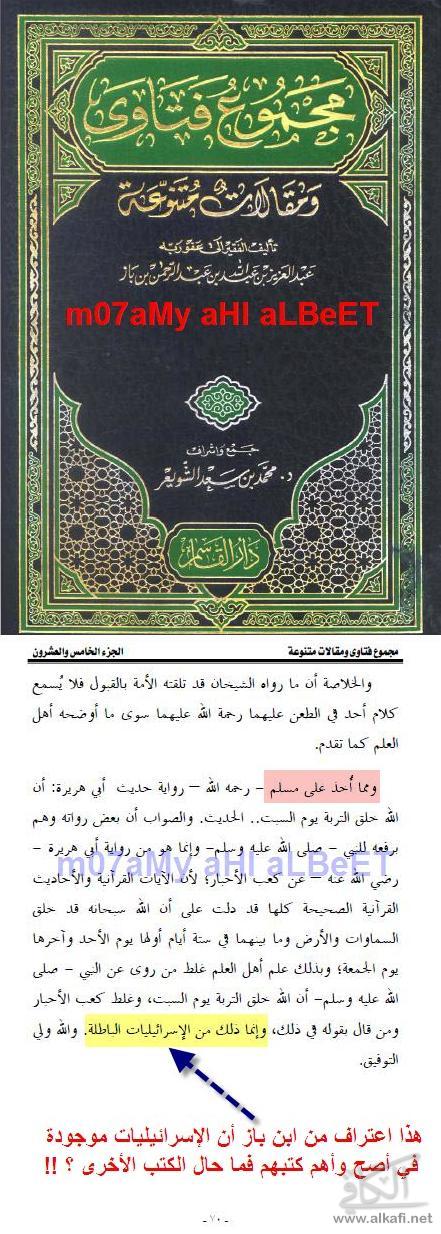 مجموع فتاوى
ومقالات متنوعة
تأليف الفقير إلى عفو ربه
عبد العزيز بن عبد الله بن عبد الرحمن بن باز
m07aMy aHl aLBeET
جمع وإشراف
د. محمد بن سعد الشويعر
دار القاسم
مجموع فتاوى ومقالات متنوعة الجزء الخامس والعشرون
والخلاصة أن ما رواه الشيخان قد تلقته الأمة بالقبول فلا يُسمع
كلام أحد في الطعن عليهما رحمة الله عليهما سوى ما أوضحه أهل
العلم كما تقدم.
ومما أُخذ على مسلم – رحمه الله – رواية حديث أبي هريرة: أن
الله خلق التربة يوم السبت.. الحديث. والصواب أن بعض رواته وهم
برفعه للنبي – صلى الله عليه وسلم– وإنما هو من رواية أبي هريرة –
m07aMy aHl aLBeET
رضي الله عنه – عن كعب الأحبار؛ لأن الآيات القرآنية والأحاديث
القرآنية الصحيحة كلها قد دلت على أن الله سبحانه قد خلق
السماوات والأرض وما بينهما في ستة أيام أولها يوم الأحد وآخرها
يوم الجمعة؛ وبذلك علم أهل العلم غلط من روى عن النبي – صلى
الله عليه وسلم– أن الله خلق التربة يوم السبت، وغلط كعب الأحبار
ومن قال بقوله في ذلك، وإنما ذلك من الإسرائيليات الباطلة. والله ولي
التوفيق.
هذا اعتراف من ابن باز أن الإسرائيليات موجودة
في أصح وأهم كتبهم فما حال الكتب الأخرى ؟ !!
الكافي
www.alkafi.net
- ٧٠ -